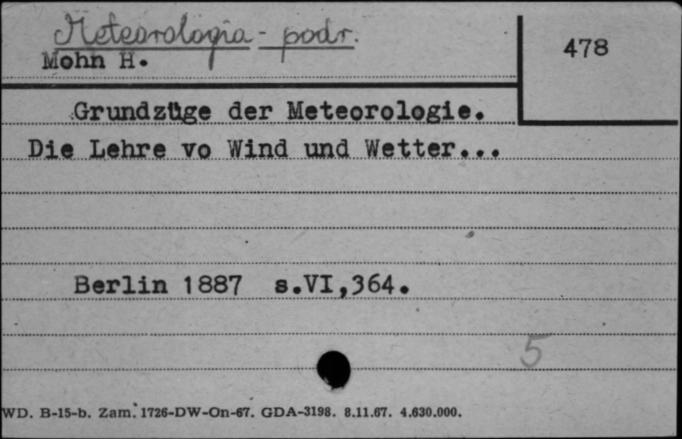 Meteorologia - podr.
478
Mohn H.
Grundzüge der Meteorologie.
Die Lehre vo Wind und Wetter...
Berlin 1887 s.VI,364.
5
WD. B-15-b. Zam. 1726-DW-On-67. GDA-3198. 8.11.67. 4.630.000.